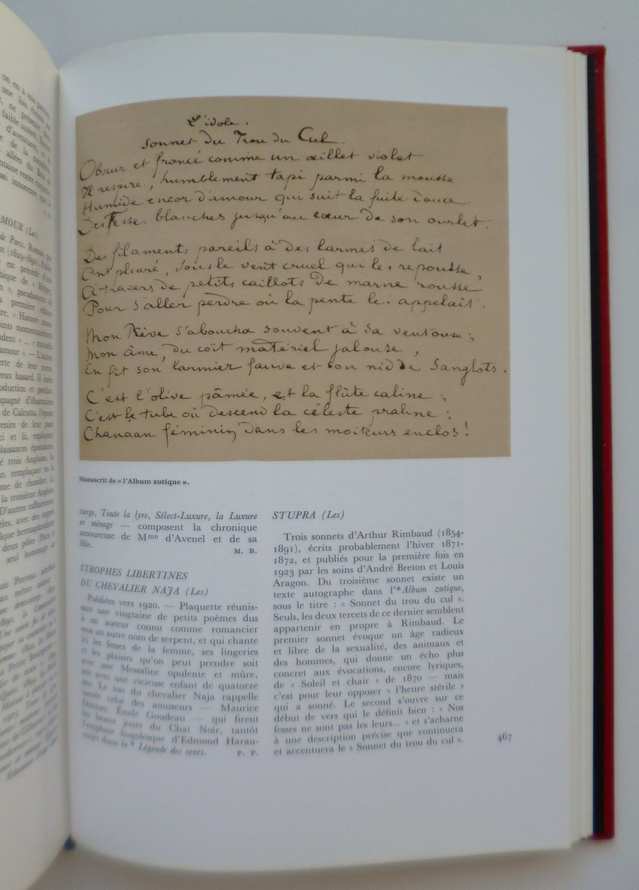 L'idole.
Sonnet du Trou du Cul.
Obscur et froncé comme un œillet violet
Il respire, humblement tapi parmi la mousse
Humide encor d'amour qui suit la fuite douce
Des Fesses blanches jusqu'au cœur de son ourlet.
Des filaments pareils à des larmes de lait
Ont pleuré, sous le vent cruel qui les repousse,
À travers de petits caillots de marne rousse
Pour s'aller perdre où la pente les appelait.
Mon Rêve s'aboucha souvent à sa ventouse ;
Mon âme, du coït matériel jalouse,
En fit son larmier fauve et son nid de sanglots.
C'est l'olive pâmée, et la flûte caline ;
C'est le tube où descend la céleste praline :
Chanaan féminin dans les moiteurs enclos !
Manuscrit de « l'Album zutique ».
tierp, Toute la lyre, Sélect-Luxure, la Luxure
et ménage — composent la chronique
amoureuse de Mme d'Avenel et de sa
fille.
M. B.
STROPHES LIBERTINES
DU CHEVALIER NAJA (Les)
Publiées vers 1920. — Plaquette réunis-
sant une vingtaine de petits poèmes dus
à un auteur connu comme romancier
sous un autre nom de serpent, et qui chante
et les fesses de la femme, ses lingeries
et les plaisirs qu'on peut prendre soit
avec une Messaline opulente et mûre,
soit avec une vicieuse enfant de quatorze
ans. Le ton du chevalier Naja rappelle
assez celui des amuseurs — Maurice
Donnay, Émile Goudeau — qui firent
les beaux jours du Chat Noir, tantôt
l'emphase hugolesque d'Edmond Harau-
court dans la * Légende des sexes.
P. P.
STUPRA (Les)
Trois sonnets d'Arthur Rimbaud (1854-
1891), écrits probablement l'hiver 1871-
1872, et publiés pour la première fois en
1923 par les soins d'André Breton et Louis
Aragon. Du troisième sonnet existe un
texte autographe dans l'*Album zutique,
sous le titre : « Sonnet du trou du cul ».
Seuls, les deux tercets de ce dernier semblent
appartenir en propre à Rimbaud. Le
premier sonnet évoque un âge radieux
et libre de la sexualité, des animaux et
des hommes, qui donne un écho plus
concret aux évocations, encore lyriques,
de « Soleil et chair » de 1870 — mais
c'est pour leur opposer « l'heure stérile »
qui a sonné. Le second s'ouvre sur ce
début de vers qui le définit bien : « Nos
fesses ne sont pas les leurs... » et s'acharne
à une description précise que continuera
et accentuera le « Sonnet du trou du cul ».
467